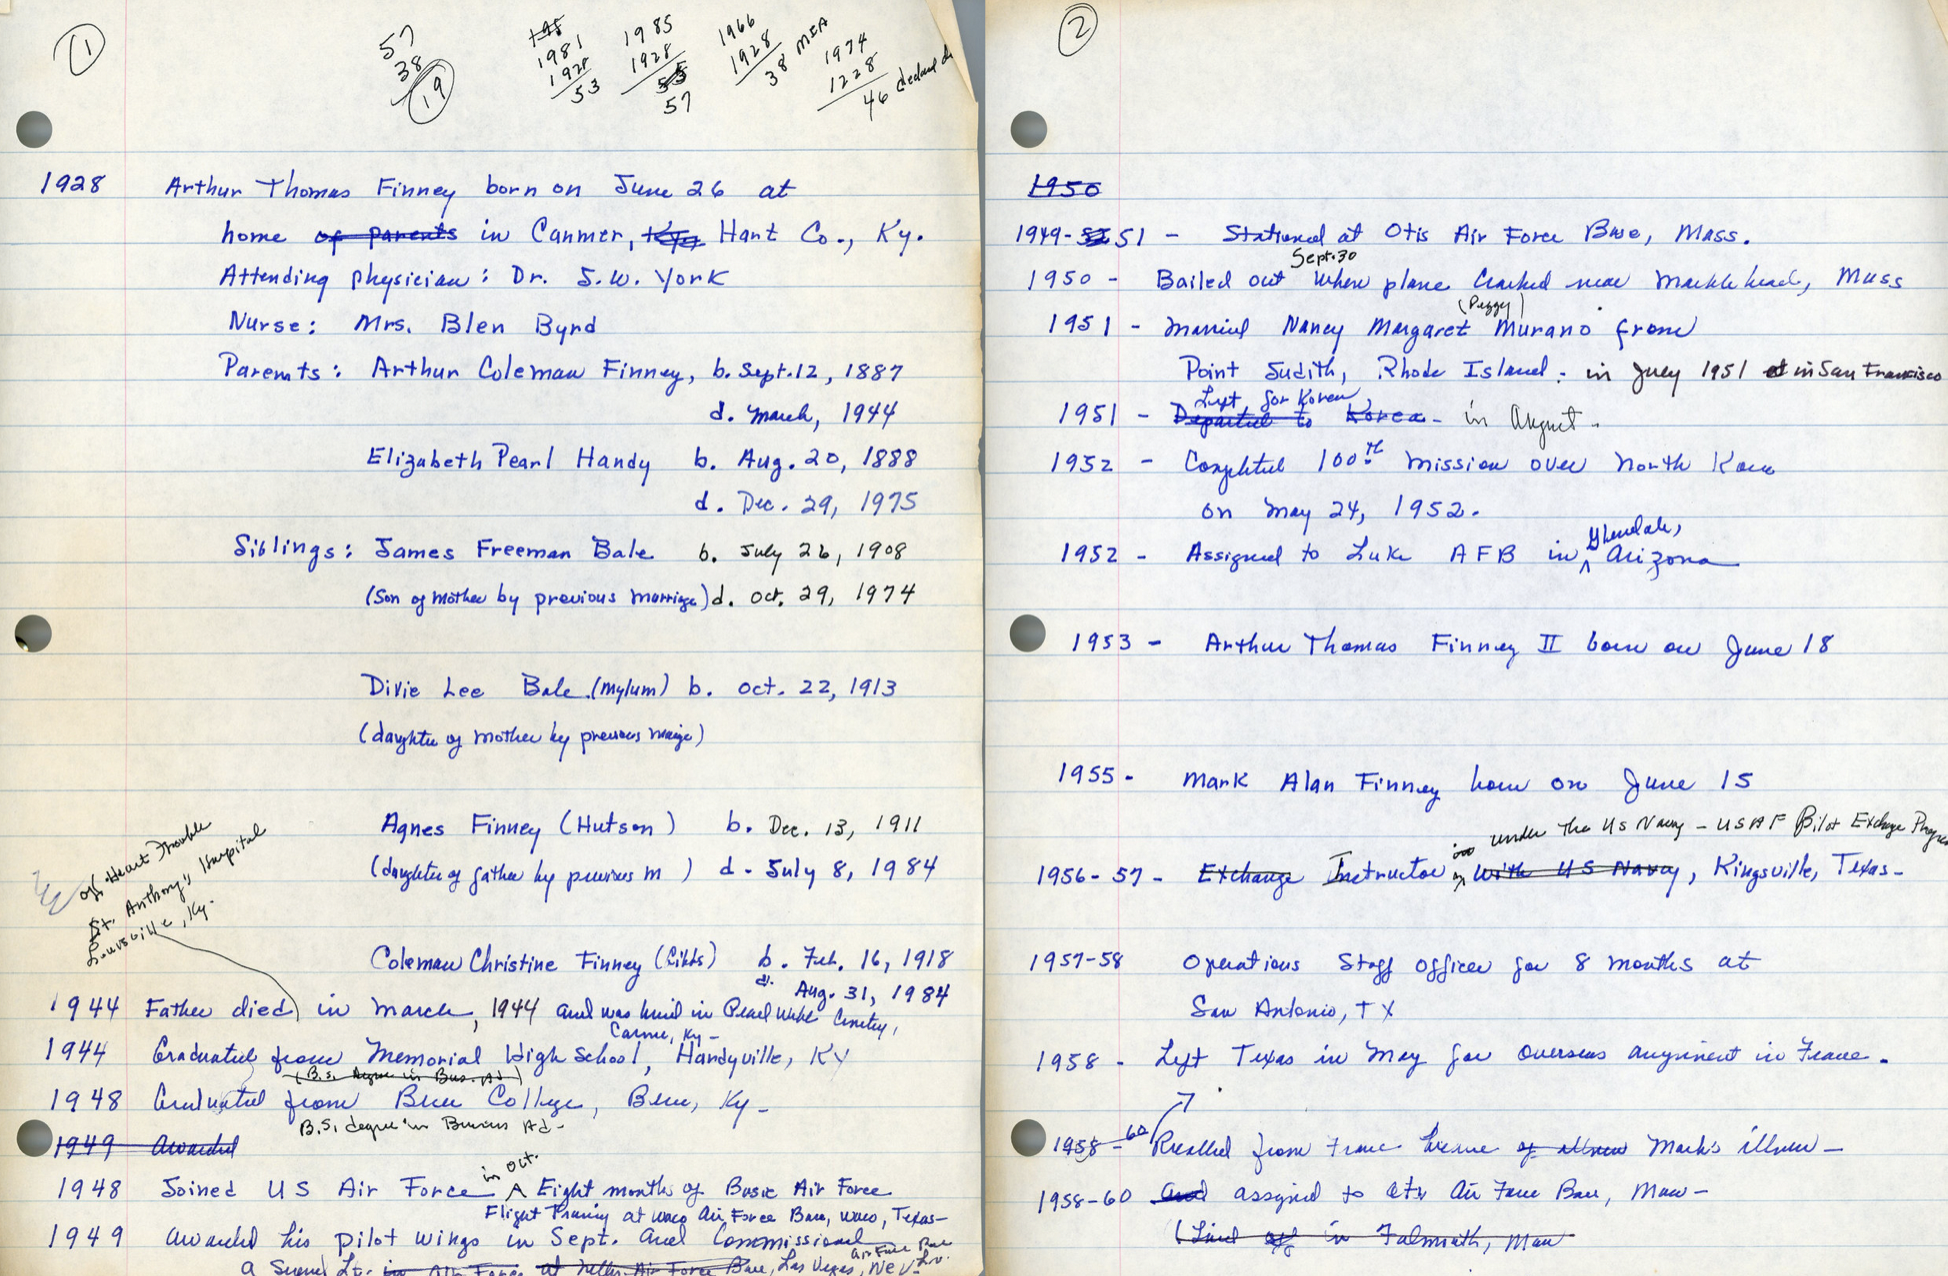 1
57
38
19
1981
1928
53
1985
1928
57
1966
1928
38 MIA
1974
1228
46 declared
1928 Arthur Thomas Finney born on June 26 at
home of parents in Canmer, Hart Co., Ky.
Attending physician: Dr. S.W. York
Nurse: Mrs. Blen Byrd
Parents: Arthur Coleman Finney, b. Sept. 12, 1887
d. March, 1944
Elizabeth Pearl Handy b. Aug. 20, 1888
d. Dec. 29, 1975
Siblings: James Freeman Bale b. July 26, 1908
(Son of mother by previous marriage) d. Oct. 29, 1974
Divie Lee Bale (Mylum) b. Oct. 22, 1913
(daughter of mother by previous marriage)
Agnes Finney (Hutson) b. Dec. 13, 1911
(daughter of father by previous m ) d. July 8, 1984
of Heart Trouble
St. Anthony's Hospital
Louisville, Ky.
Coleman Christine Finney b. Feb. 16, 1918
d. Aug. 31, 1984
1944 Father died in March, 1944 and was buried in Pearl Cemetery,
Ky -
1944 Graduated from Memorial High School, Hardyville, KY
(B.S. degree in Bus. Ad)
1948 Graduated from Berea College, Berea, Ky -
B.S. degree in Business Ad -
1949 Awarded
in Oct.
1948 Joined US Air Force A Eight months of Basic Air Force
Flight Training at Waco Air Force Base, Waco, Texas -
1949 Awarded his pilot wings in Sept. and Commissioned
Air Force Base
a Second Lt. in Air Force at Nellis Air Force Base, Las Vegas, Nev.
2
1950
1949-51 - Stationed at Otis Air Force Base, Mass.
Sept. 30
1950 - Bailed out when plane crashed near Marblehead, Mass
(Peggy)
1951 - Married Nancy Margaret Murano from
Point Judith, Rhode Island. in July 1951 at in San Francisco
Left for Korea
1951 - Departed to Korea - in August -
1952 - Completed 100th mission over North Korea
on May 24, 1952.
Glendale,
1952 - Assigned to Luke AFB in Arizona
1953 - Arthur Thomas Finney II born on June 18
1955 - Mark Alan Finney born on June 15
under the US Navy - USAF Pilot Exchange Program
1956-57 - Exchange Instructor in with US Navy, Kingsville, Texas -
1957-58 Operations Staff officer for 8 months at
San Antonio, TX
1958 - Left Texas in May for overseas assignment in France.
1958-60 Recalled from France because of illness Mark's illness -
1958-60 and assigned to Otis Air Force Base, Mass -
(Lived off in Falmouth, Mass